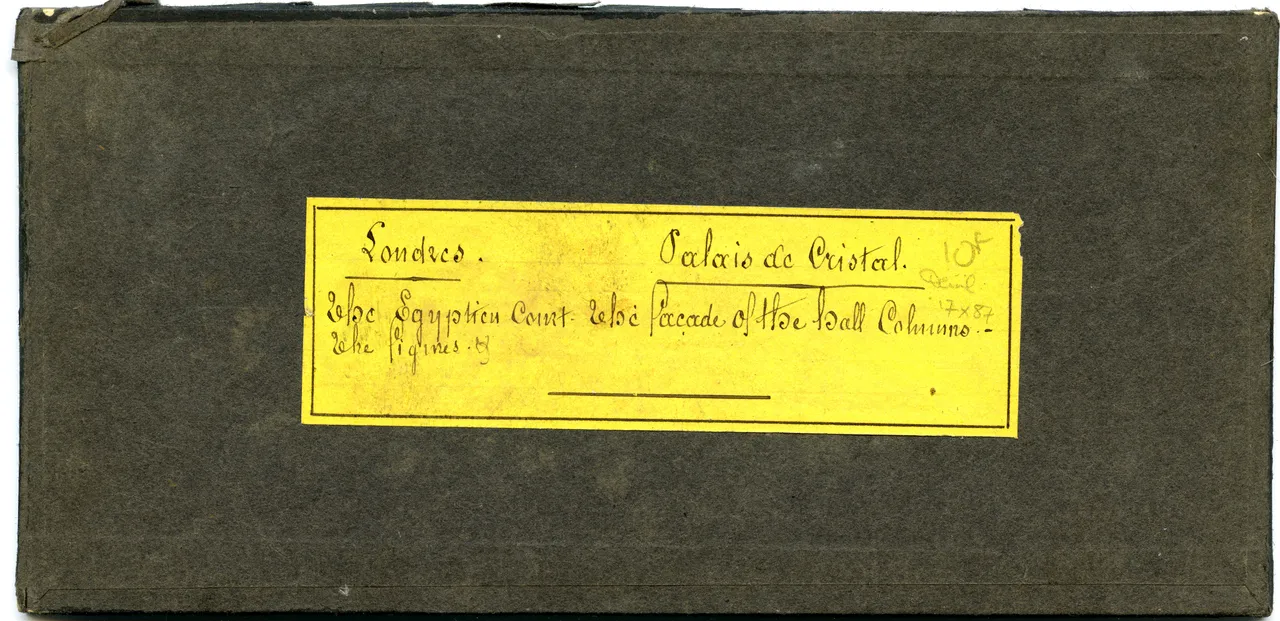 Londres. Palais de Cristal.
10f
17 x 87
The Egyptien Court The façade of the hall Columns.-
The figures.